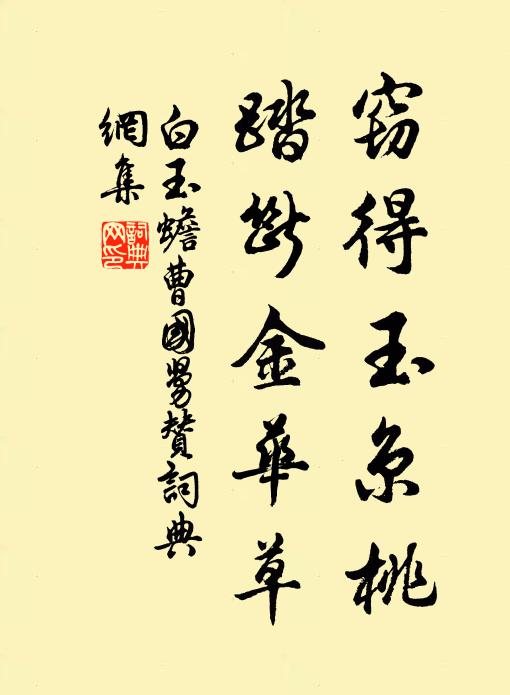 窃得玉京桃
踏斷金華草
白玉蟾曹國舅贊詞典
網集
詞典
网印